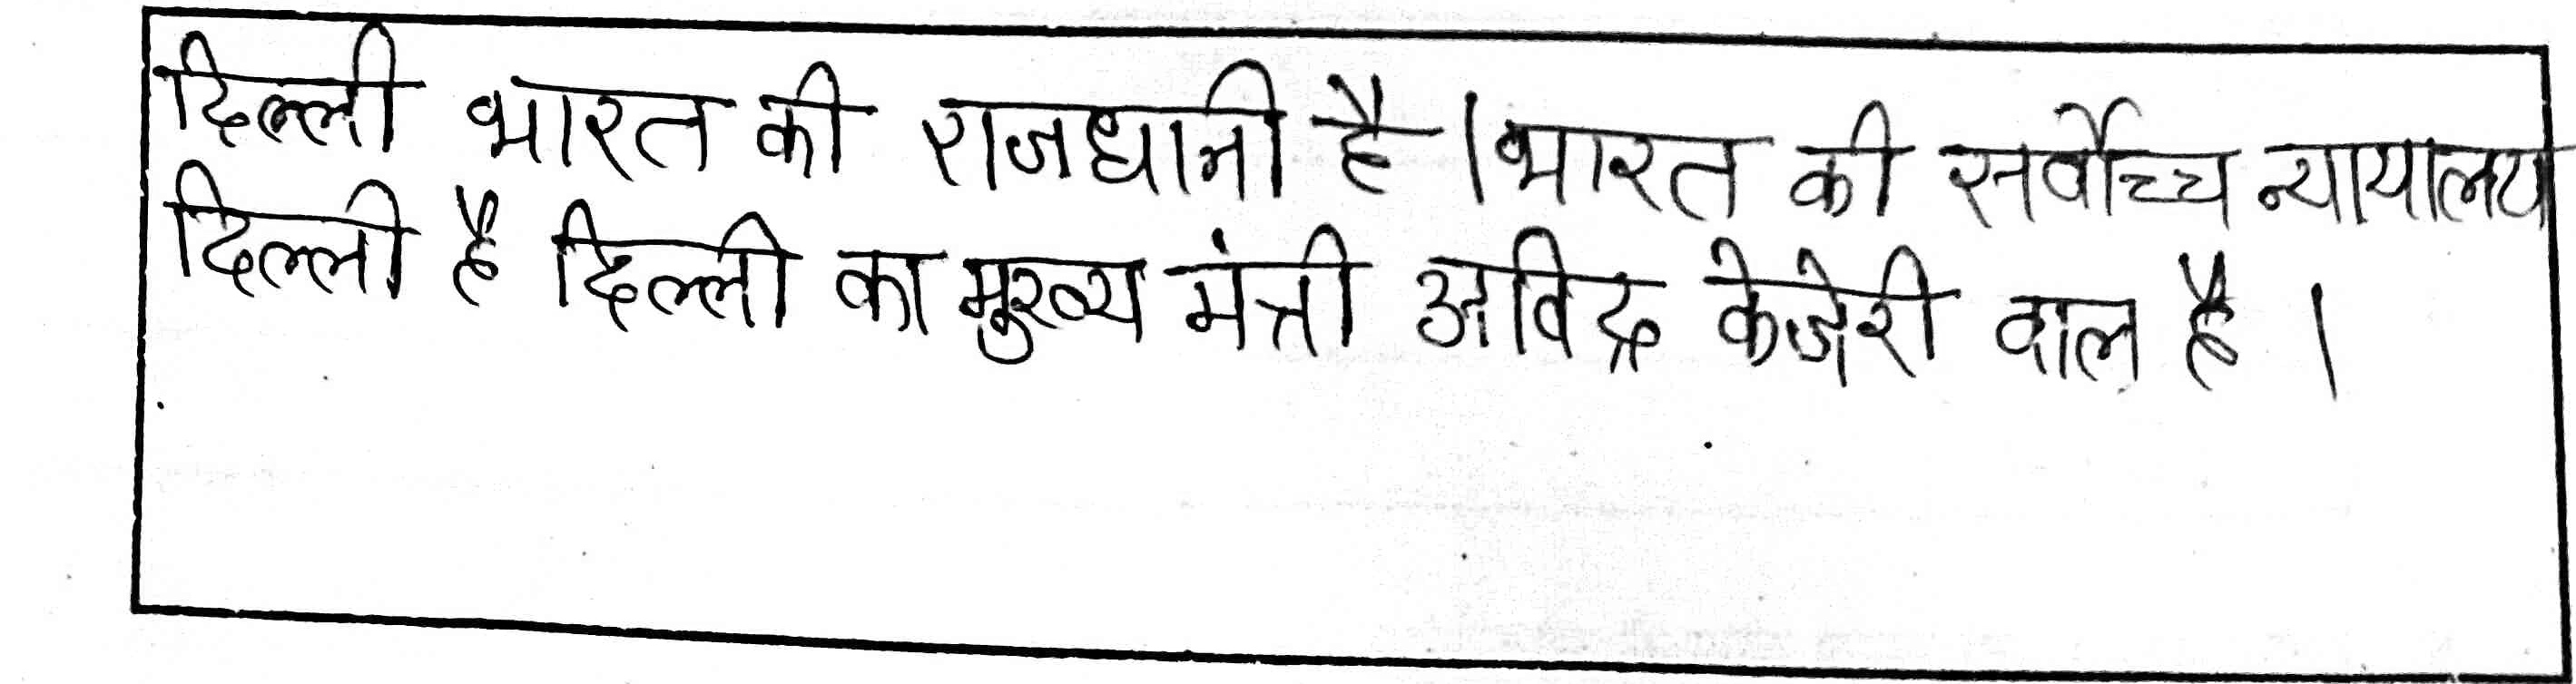 दिल्ली भारत की राजधानी है । भारत की सर्वोच्च न्यायालय
दिल्ली है दिल्ली का मुख्य मंत्री अविंद्र केजेरी वाल है ।